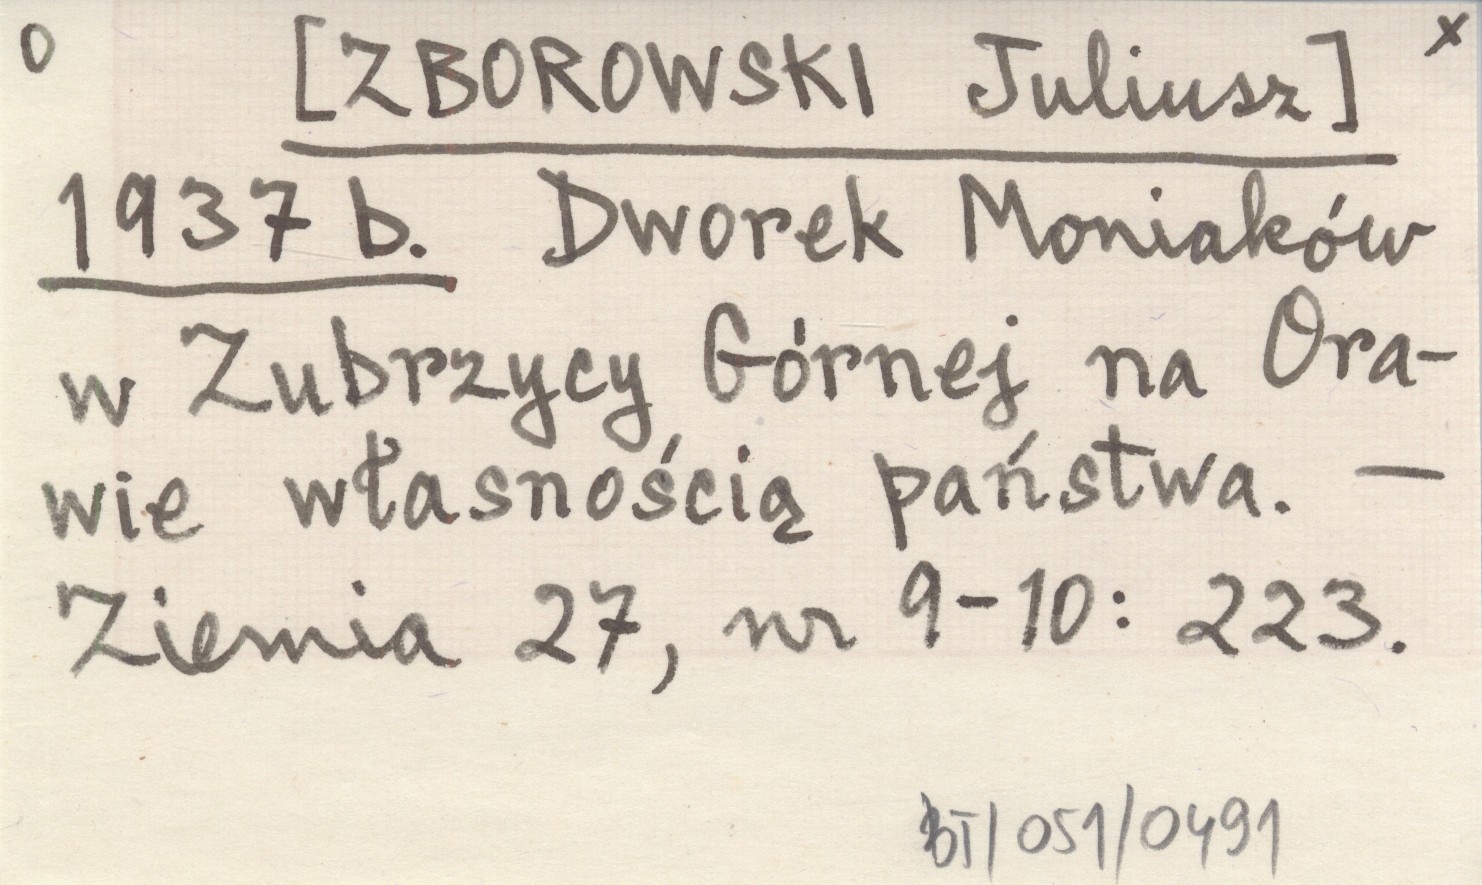 O [ZBOROWSKI Juliusz] x
1937 b. Dworek Moniaków
w Zubrzycy Górnej na Ora-
wie własnością państwa. —
Ziemia 27, nr 9-10: 223.
BT/051/0491